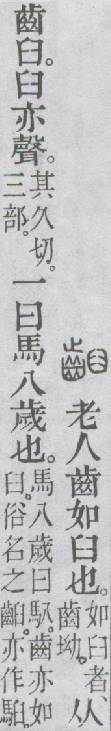 齨 老人齒如臼也。如臼者齒坳。从
齒臼。臼亦聲。其久切。三部。一曰馬八歲也。馬八歲曰䭿齒亦如臼。俗名之齨。亦作